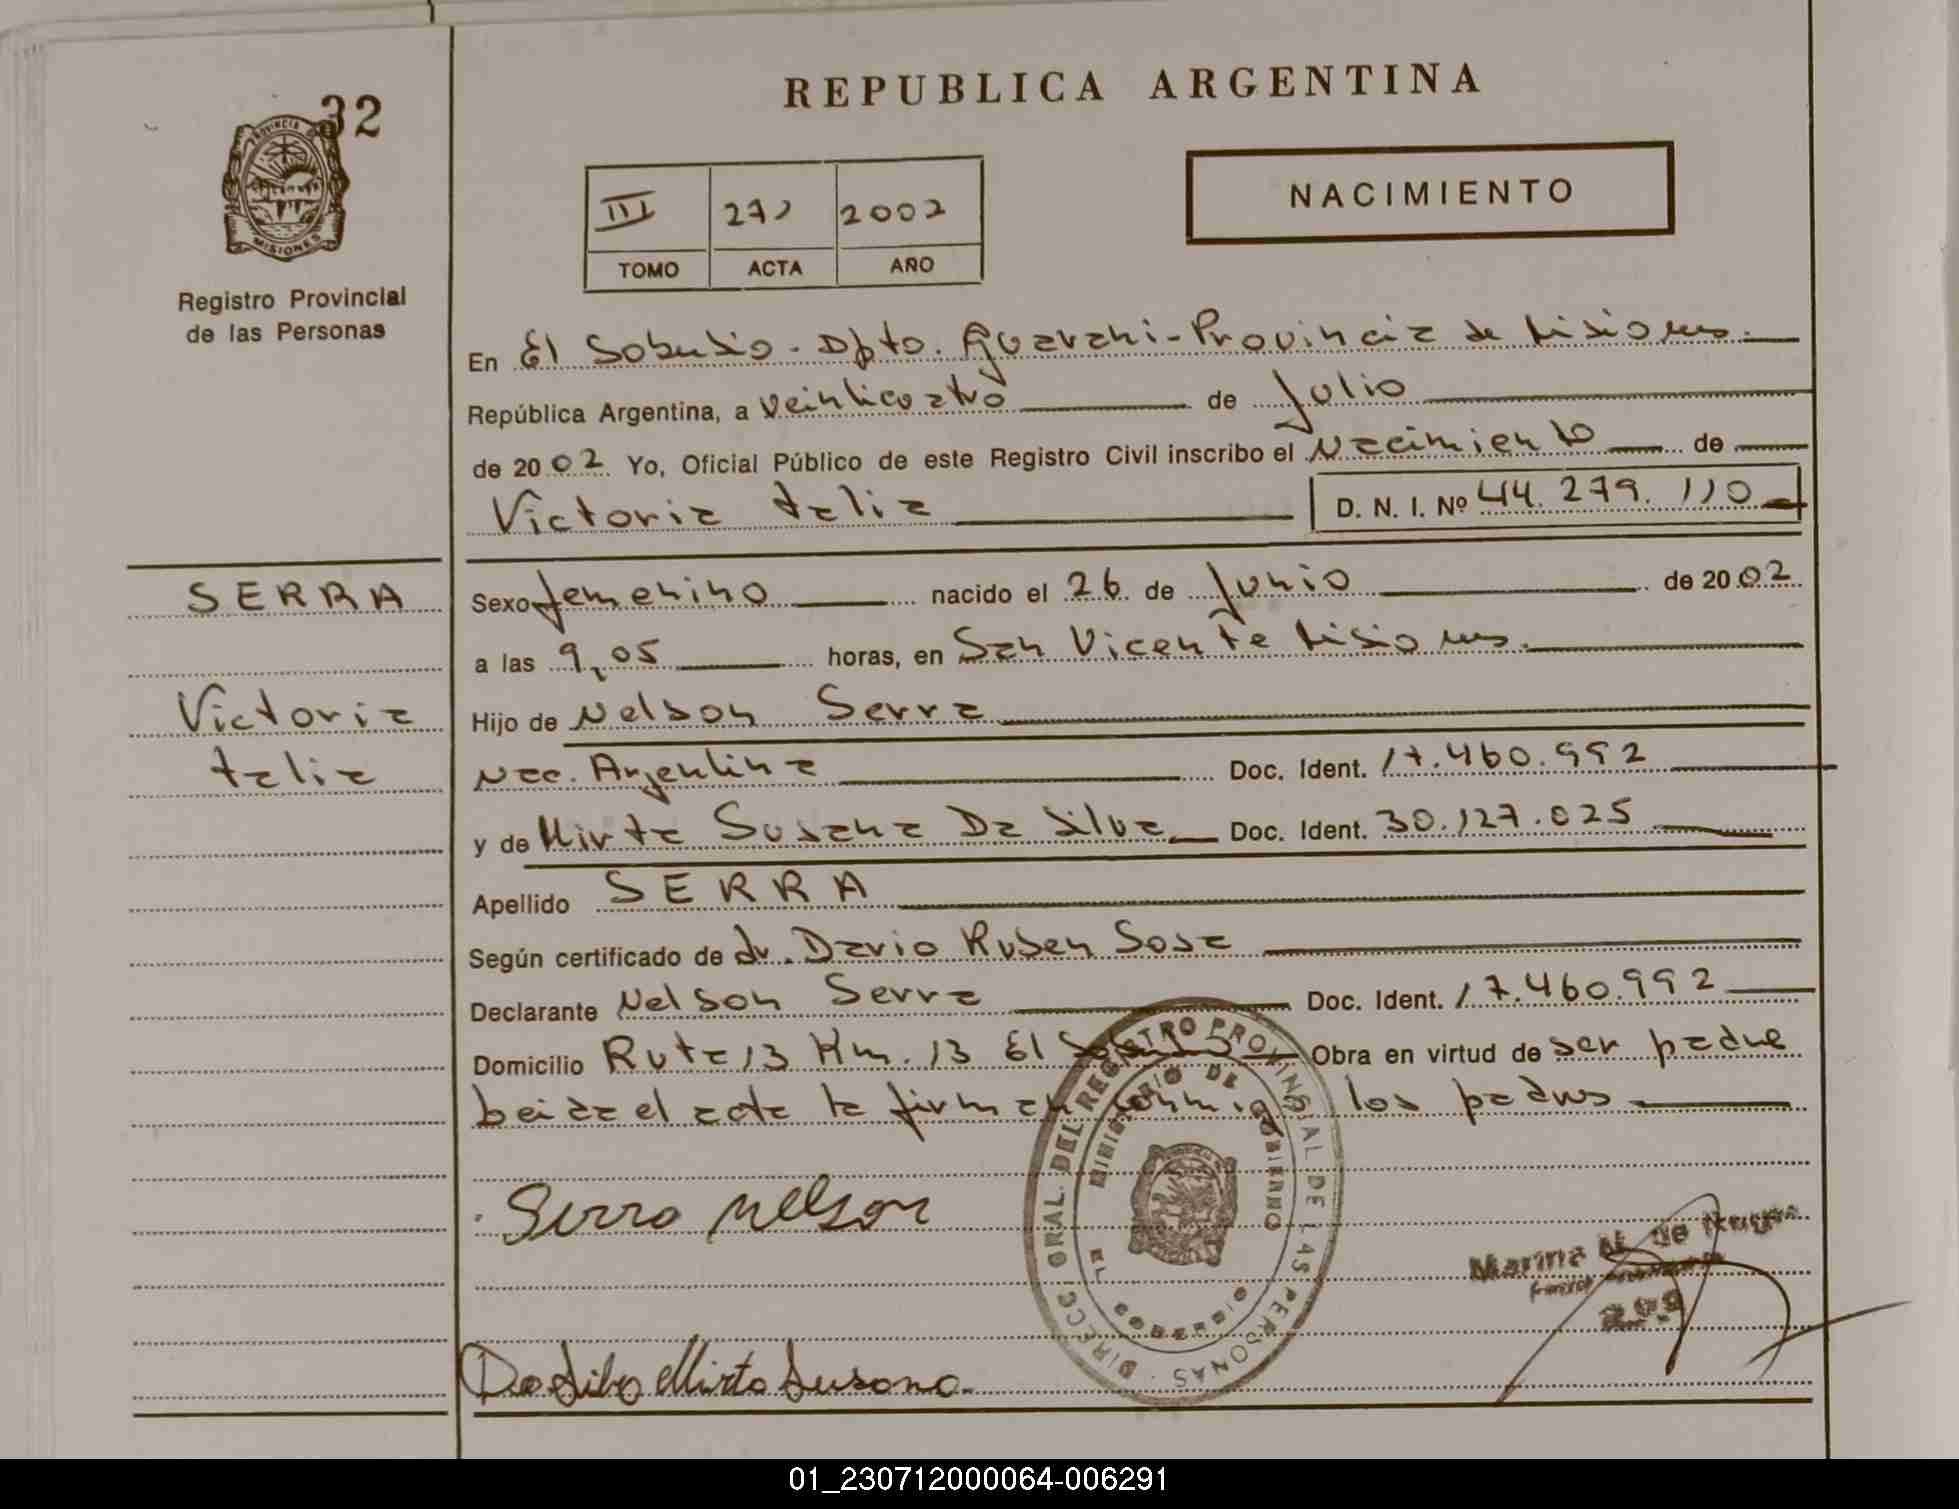 32
PROVINCIA DE
MISIONES
Registro Provincial
de las Personas
REPUBLICA ARGENTINA
III 2002
TOMO ACTA AÑO
NACIMIENTO
En El Soberbio - Dpto. Guarani - Provincia de Misiones.
República Argentina, a veinticuatro de Julio
de 2002 Yo, Oficial Público de este Registro Civil inscribo el Nacimiento de
Victoria Talia D. N. I. Nº 44.279.110
SERRA
Victoria
Talia
Sexo femenino nacido el 26 de Junio de 2002
a las 9,05 horas, en San Vicente Misiones.
Hijo de Nelson Serra
Nac. Argentina Doc. Ident. 17.460.992
y de Mirta Susana Da Silva Doc. Ident. 30.127.025
Apellido SERRA
Según certificado de dr. Dario Ruben Sosa
Declarante Nelson Serra Doc. Ident. 17.460.992
Domicilio Ruta 13 Km. 13 El Soberbio Obra en virtud de ser padre
Leida el acta la firman conmigo los padres
Serra Nelson
DIRECC. GRAL. DEL REGISTRO PROVINCIAL DE LAS PERSONAS
MINISTERIO DE GOBIERNO
EL SOBERBIO
Marina
Da Silva Mirta Susana.
01_230712000064-006291